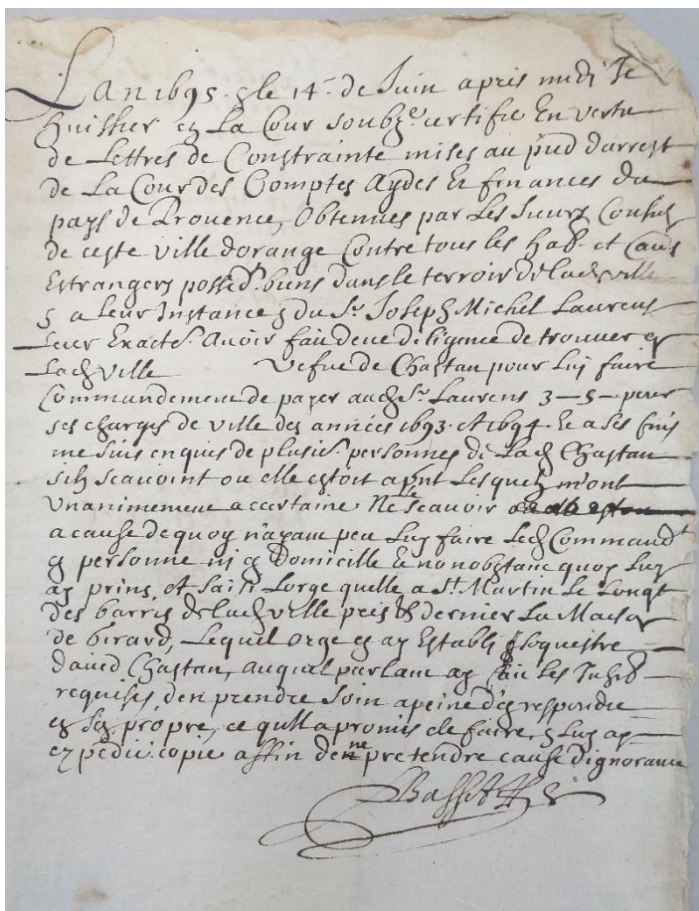 Lan 1695 & le 14e de Juin apres midi Je
huissier en La Cour soubz.e certifie En vertu
de Lettres de Constrainte mises au pied darrest
de La Cour des Comptes Aydes Et finances du
pays de Provence, Obtenues par Les sieurs Consulz
de ceste ville dorange Contre tous les hab. et
Estrangers possed. biens dans le terroir de lad ville
& a Leur Instance & du Sr Joseph Michel Laurens
Leur Exacte.r Avoir fait deue diligence de trouver en
Lad ville vefue de Chastan pour Luy faire
Commandement de payer aud Sr Laurens 3 - 5 - pour
ses charges de ville des années 1693 et 1694 Et a ses fins
me suis enquis de plusie.rs personnes de Lad Chastan
silz scavoint ou elle estoit apnt Lesquelz mont
Unanimement acertaine Ne le scavoir
a cause de quoy nayant peu Luy faire Led Command.t
en personne ni en Domicille Et nonobstant quoy Luy
ay prins, et saisi Lorge quelle a St. Martin Le Longt
des barris de lad ville pres & dernier La Maison
de birard, Lequel orge en ay Establi sequestre
david Chastan, auquel parlant ay fait Les Inhib.
requises den prendre soin a peine den respondre
en son propre, ce quil a promis de faire, & Luy ay
expedié copie affin de ne pretendre cause dignorance
Basset